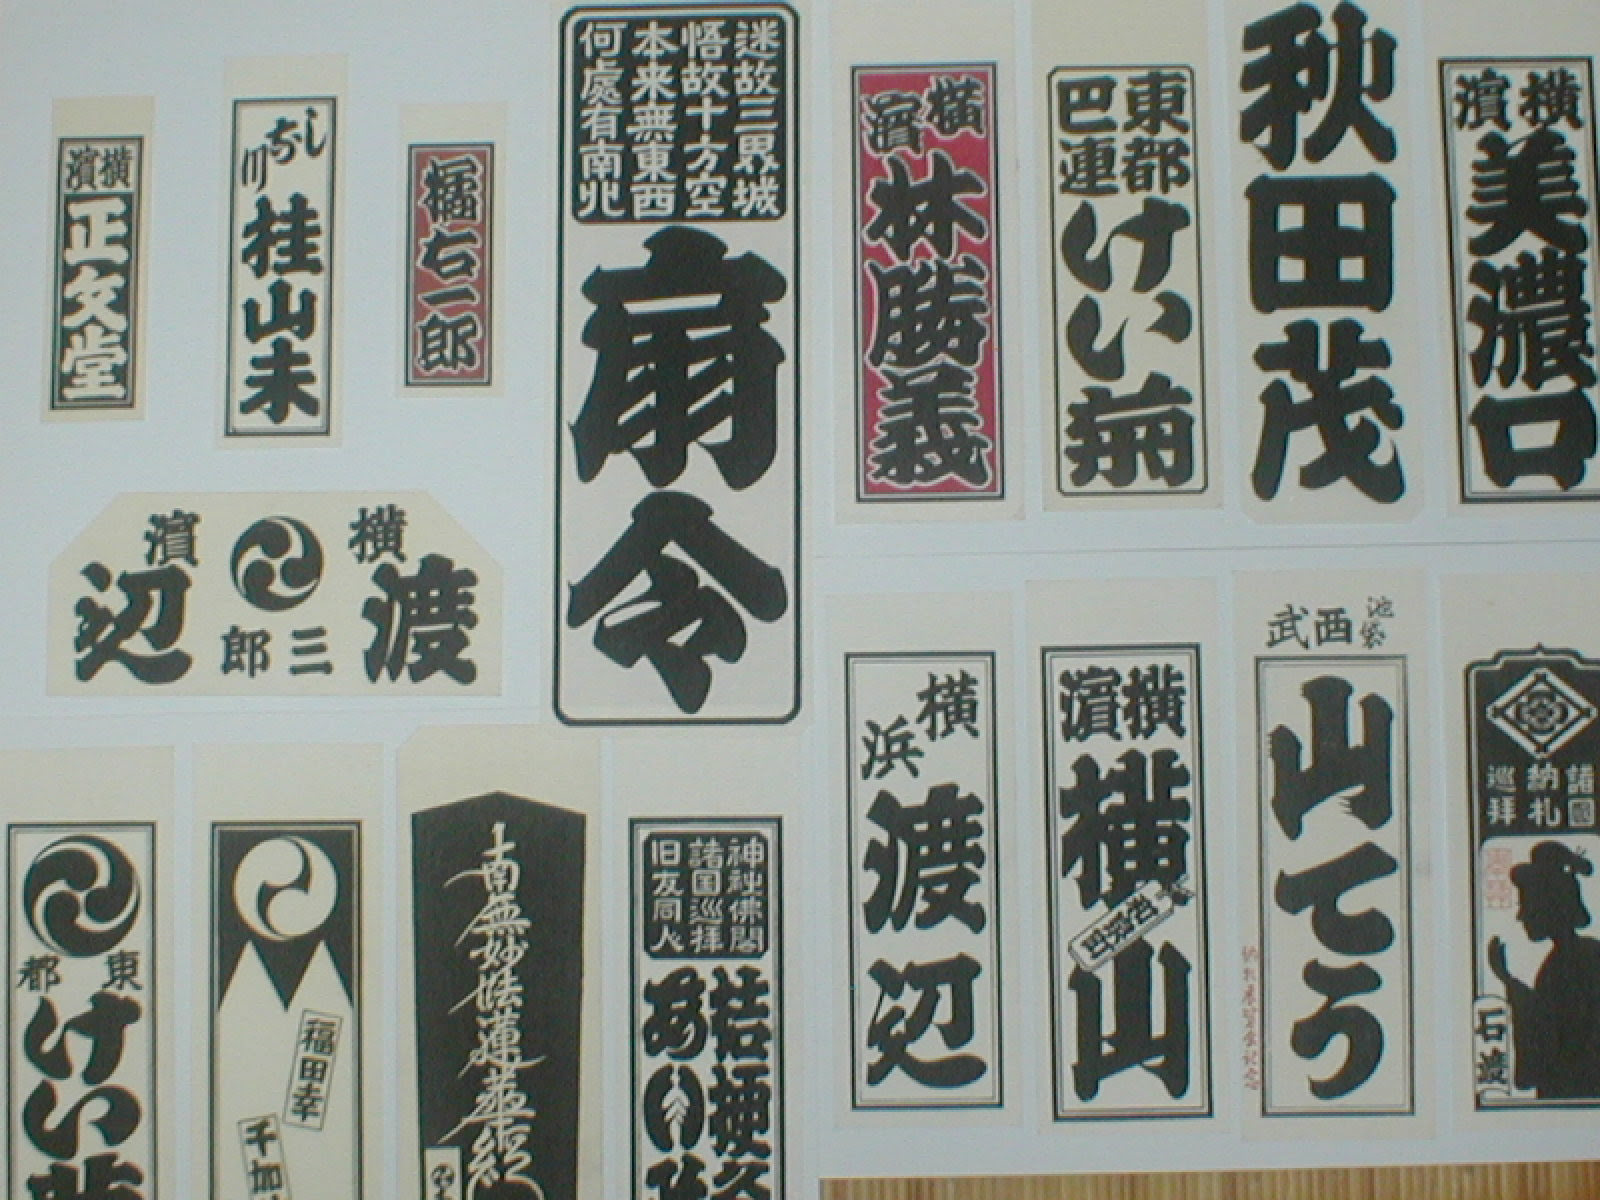 横濱
正文堂
しぶ川
桂山未
堀右一郎
迷故三界城
悟故十方空
本来無東西
何處有南北
扇令
横濱
林勝義
東都
巴連
けい菊
秋田茂
横濱
美濃口
横濱
渡辺
三郎
横浜
渡辺
横濱
横山
池袋
西武
山てう
諸國
納札
巡拝
石渡
東都
けい菊
福田幸
千加
南無妙法蓮華経
神社佛閣
諸国巡拝
旧友同人
桔梗